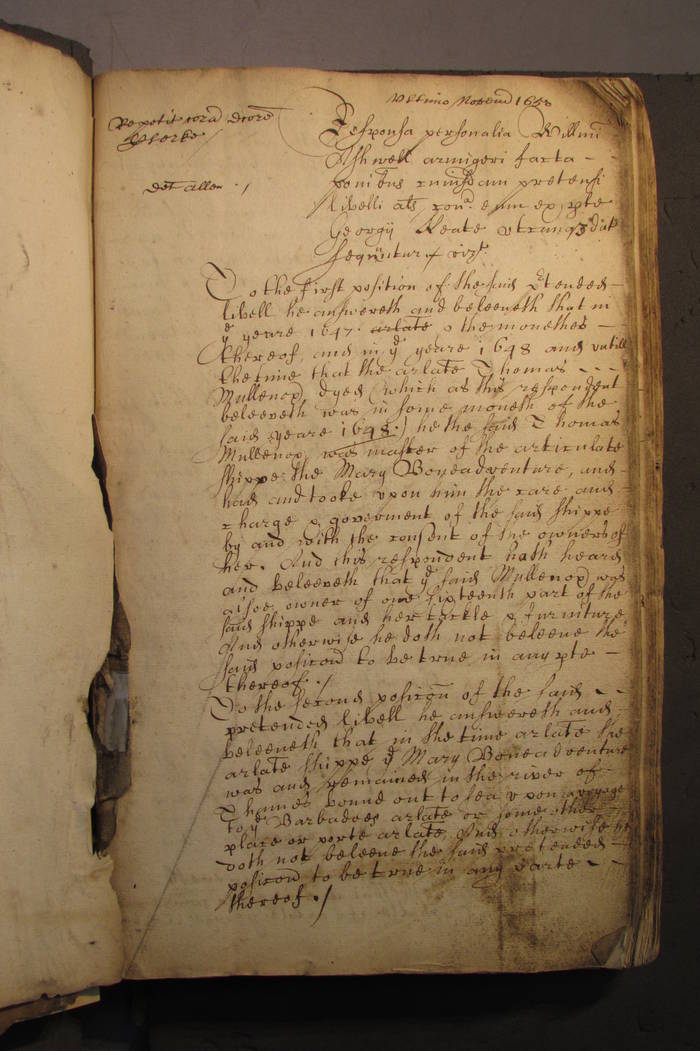 Ultimo Novemb 1650
Repetit corā doctore
Clerke /
Dot Allen . /
Responsa personalia Willmi
Ashwell armigeri facta -
positionibus cuiusdam pretensi
libelli als con. eum ex pte
Georgij Keate
sequuntur vizt.
To the first position of the said Ptended
libell he answereth and beleeveth that in
ye yeare 1647 arlate, & the moneths -
thereof, and in ye yeare 1648 and untill
the time that the arlate Thomas - - -
Mullenox dyed (which as this respondent
beleeveth was in some moneth of the
said yeare 1648.) he the said Thomas
Mullenox was master of the articulate
shippe the Mary Boneadventure, and -
had and tooke upon him the care and -
charge & goverment of the said shippe
by and with the consent of the owners of
her. And this respondent hath heard
and beleeveth that ye said Mullenox was
alsoe owner of one sixteenth part of the
said shippe and her tackle & furniture
And otherwise he doth not beleeve the
said posicōn to be true in any pte -
thereof . /
To the second posicōn of the said - -
pretended libell he answereth and -
beleeveth that in the time arlate the
arlate shippe ye Mary Boneadventure
was and remained in the river of -
Thames bound out to sea upon a voyage
to ye Barbadoes arlate or some other
place or porte arlate, And otherwise he
doth not beleeve the said pretended -
posicōn to be true in any parte - -
thereof . /